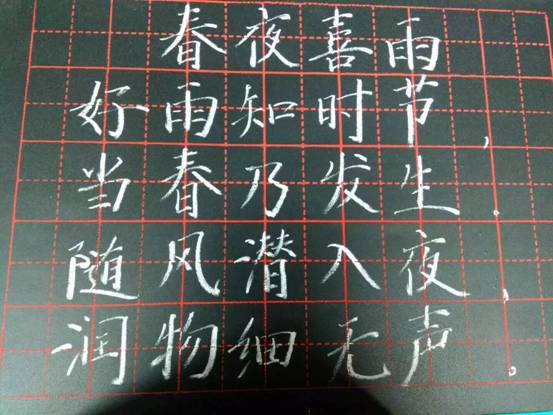 春夜喜雨
好雨知时节，
当春乃发生。
随风潜入夜，
润物细无声。